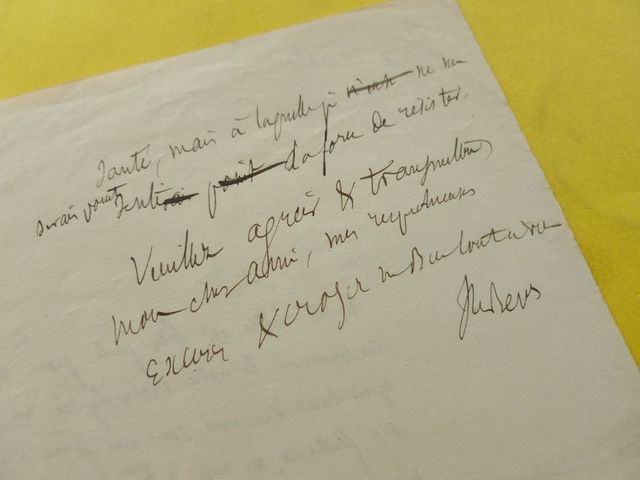 santé, mais à laquelle je ne me
serais point senti la force de résister.
Veuillez agréer & transmettre,
mon cher ami, mes respectueuses
excuses & croyez